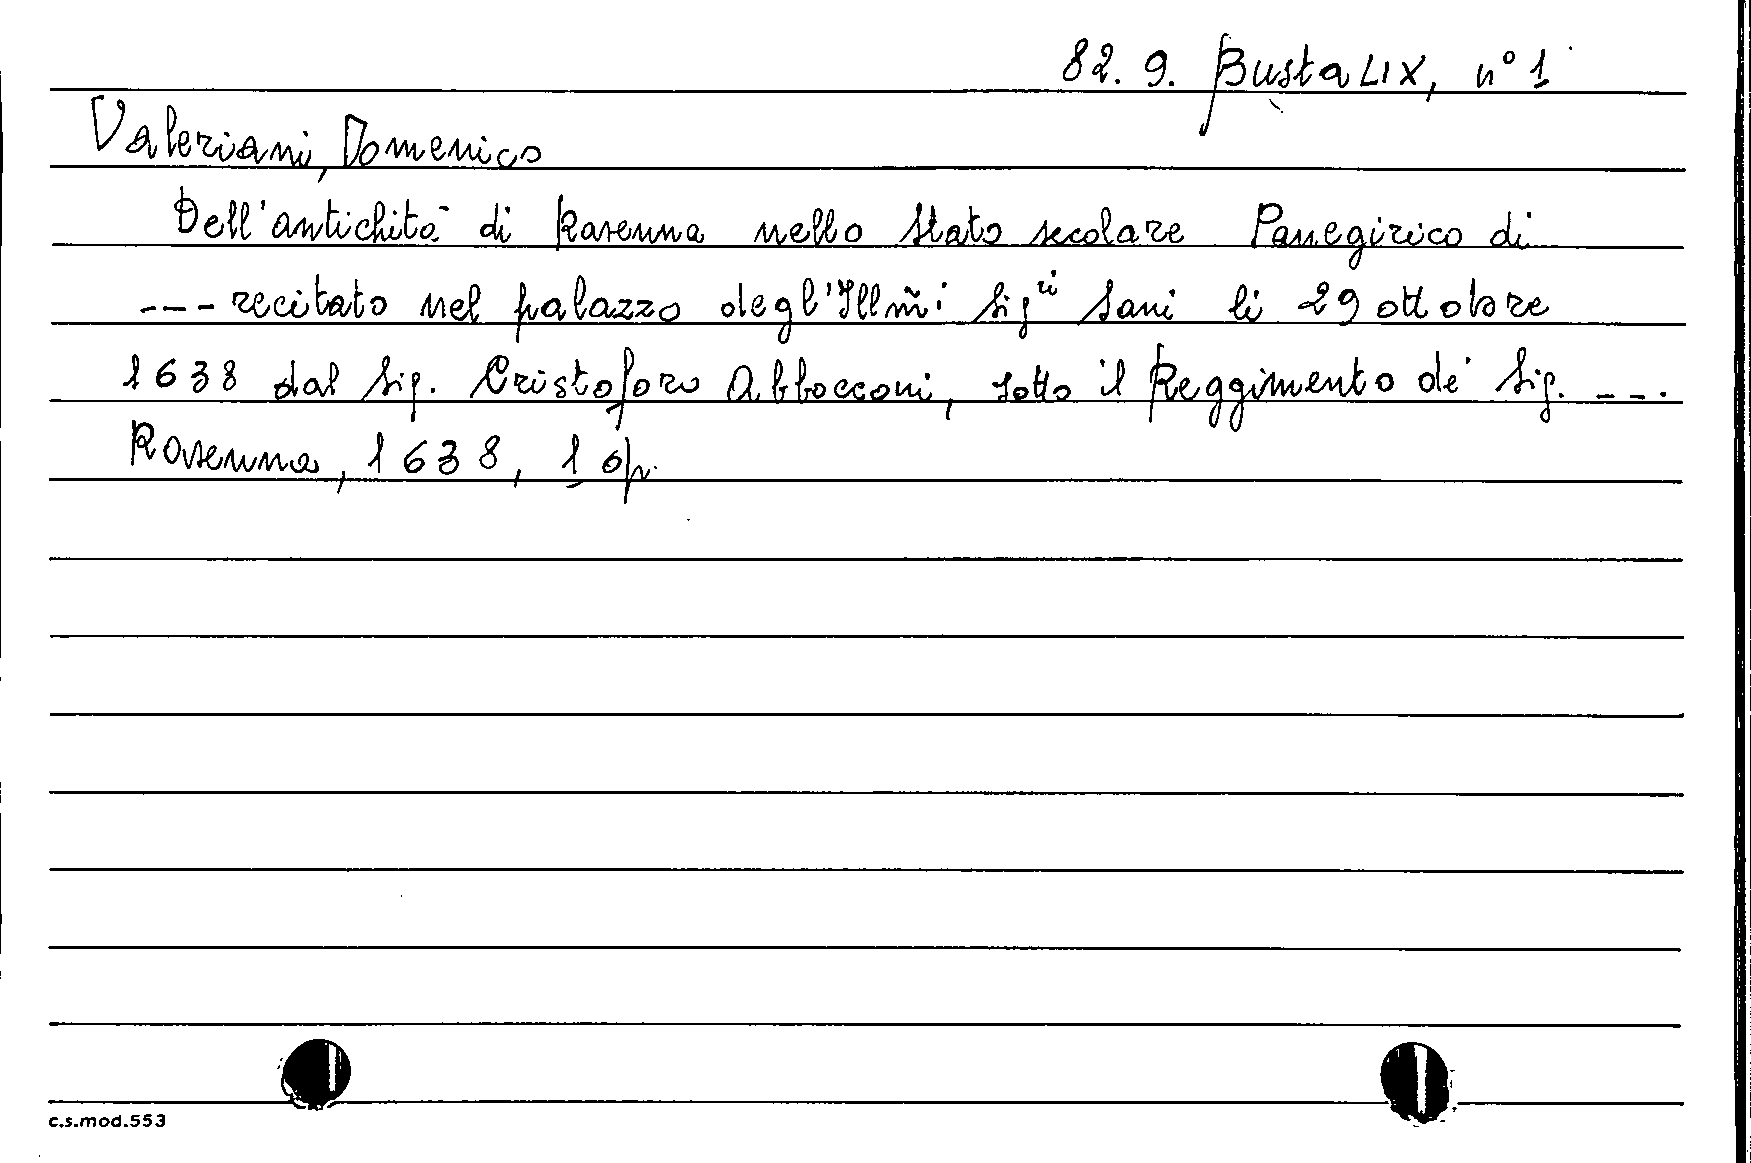 82. 9. Busta LIX, n° 1
Valeriani, Domenico
Dell'antichità di Ravenna nello Stato secolare Panegirico di
--- recitato nel palazzo degl'Illm̃i Sig.ri Sani li 29 ottobre
1638 dal Sig. Cristoforo Abbocconi, sotto il Reggimento de' Sig. ---.
Ravenna, 1638, 1 op.
c.s.mod.553